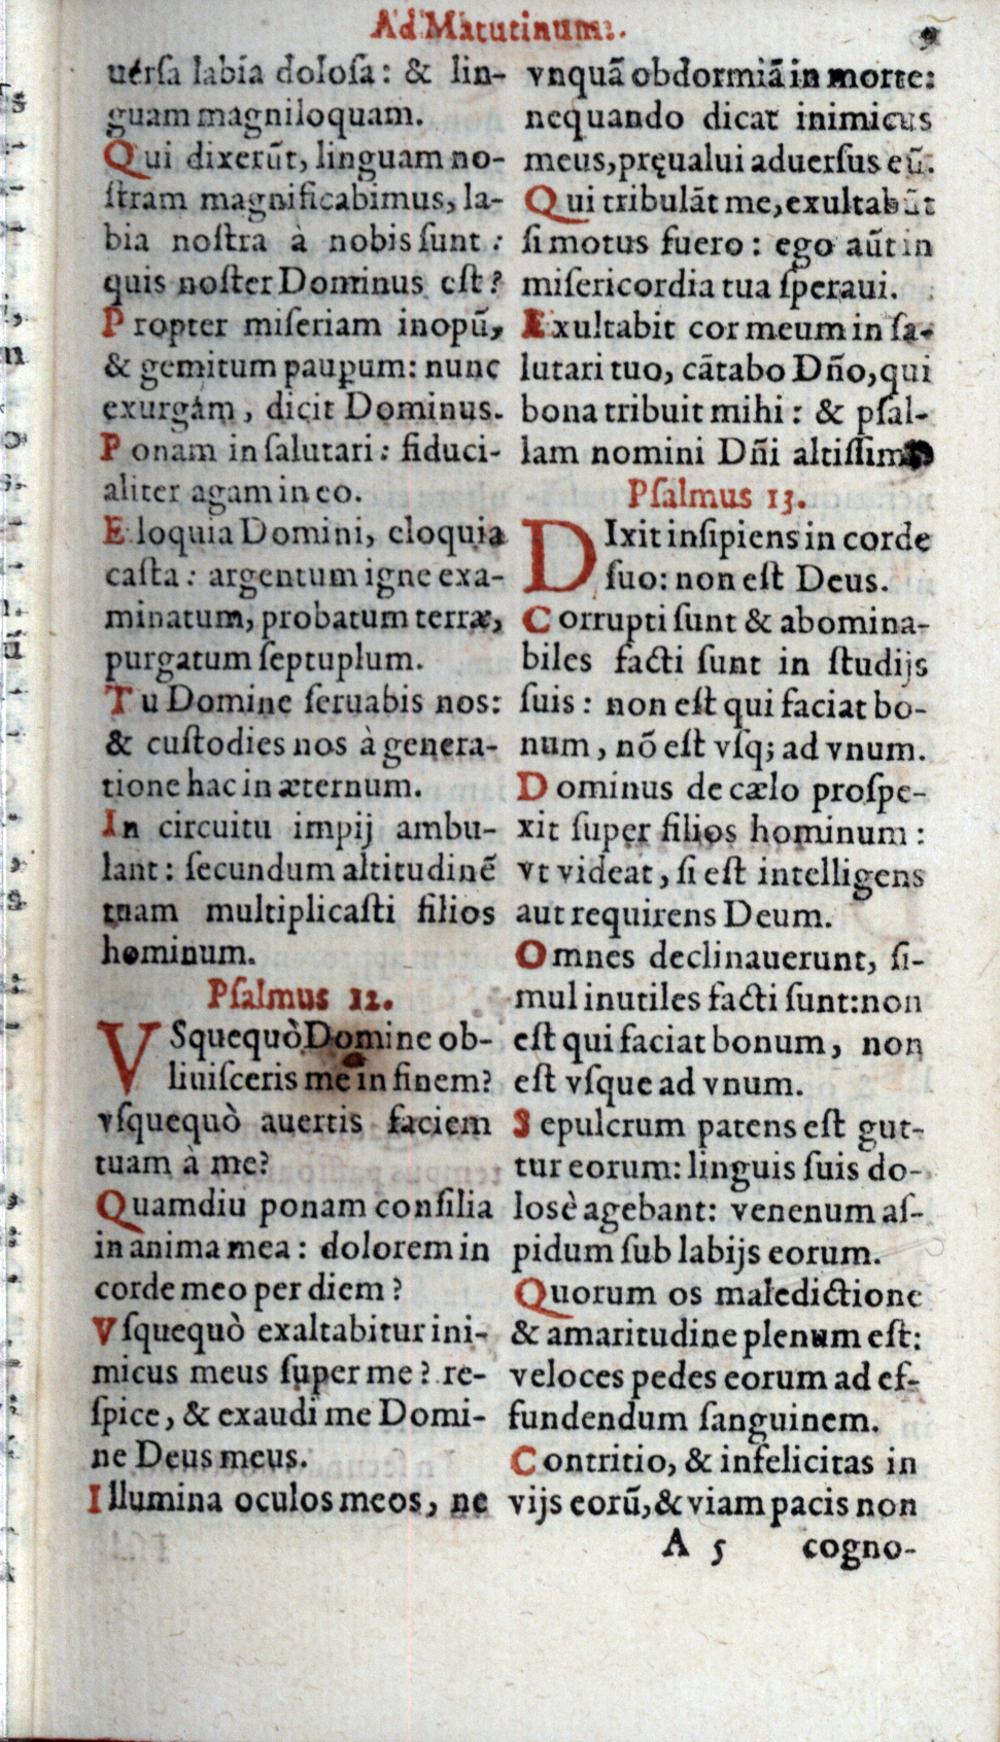 Ad Matutinum.
9
uersa labia dolosa: & lin-
guam magniloquam.
Qui dixerũt, linguam no-
stram magnificabimus, la-
bia nostra à nobis sunt:
quis noster Dominus est?
Propter miseriam inopũ,
& gemitum pauꝑum: nunc
exurgam, dicit Dominus.
Ponam in salutari: fiduci-
aliter agam in eo.
Eloquia Domini, eloquia
casta: argentum igne exa-
minatum, probatum terræ,
purgatum septuplum.
Tu Domine seruabis nos:
& custodies nos à genera-
tione hac in æternum.
In circuitu impij ambu-
lant: secundum altitudinẽ
tuam multiplicasti filios
hominum.
Psalmus 12.
VSquequò Domine ob-
liuisceris me in finem?
vsquequò auertis faciem
tuam à me?
Quamdiu ponam consilia
in anima mea: dolorem in
corde meo per diem?
Vsquequò exaltabitur ini-
micus meus super me? re-
spice, & exaudi me Domi-
ne Deus meus.
Illumina oculos meos, ne
vnquã obdormiã in morte:
nequando dicat inimicus
meus, pręualui aduersus eũ.
Qui tribulãt me, exultabũt
si motus fuero: ego aũt in
misericordia tua speraui.
Exultabit cor meum in sa-
lutari tuo, cãtabo Dño, qui
bona tribuit mihi: & psal-
lam nomini Dñi altissim
Psalmus 13.
DIxit insipiens in corde
suo: non est Deus.
Corrupti sunt & abomina-
biles facti sunt in studijs
suis: non est qui faciat bo-
num, nõ est vsq; ad vnum.
Dominus de cælo prospe-
xit super filios hominum:
vt videat, si est intelligens
aut requirens Deum.
Omnes declinauerunt, si-
mul inutiles facti sunt: non
est qui faciat bonum, non
est vsque ad vnum.
Sepulcrum patens est gut-
tur eorum: linguis suis do-
losè agebant: venenum as-
pidum sub labijs eorum.
Quorum os maledictione
& amaritudine plenum est:
veloces pedes eorum ad ef-
fundendum sanguinem.
Contritio, & infelicitas in
vijs eorũ, & viam pacis non
A 5 cogno-